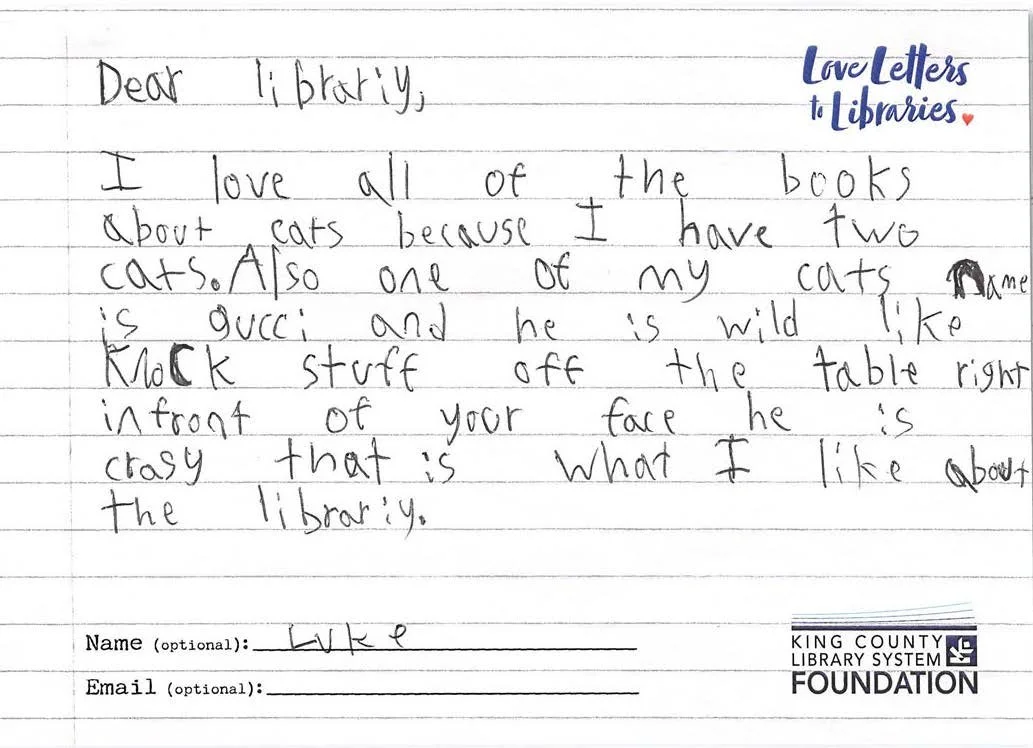 Love Letters
to Libraries
Dear librariy,
I love all of the books
about cats because I have two
cats. Also one of my cats name
is gucci and he is wild like
Knock stuff off the table right
infront of your face he is
crasy that is what I like about
the librariy.
Name (optional): Luke
Email (optional):
KING COUNTY
LIBRARY SYSTEM
FOUNDATION